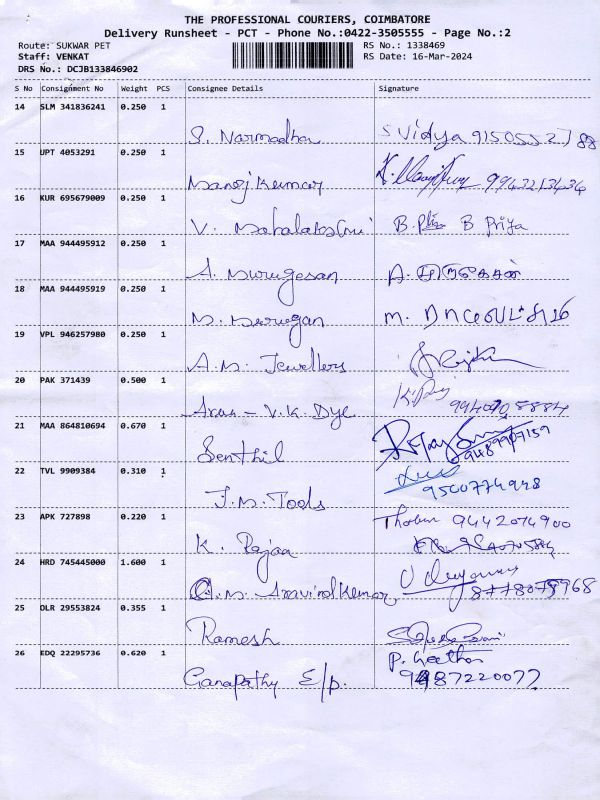 THE PROFESSIONAL COURIERS, COIMBATORE
Delivery Runsheet - PCT - Phone No.:0422-3505555 - Page No.:2
Route: SUKWAR PET
RS No.: 1338469
Staff: VENKAT
RS Date: 16-Mar-2024
DRS No.: DCJB133846902
S No Consignment No Weight PCS Consignee Details Signature
14 SLM 341836241 0.250 1
S. Narmadha S Vidya
15 UPT 4053291 0.250 1
Manoj Kumar 9943213434
16 KUR 695679009 0.250 1
V. Mahalakshmi B. Priya B Priya
17 MAA 944495912 0.250 1
A. Murugesan A. முருகேசன்
18 MAA 944495919 0.250 1
M. Murugan m.
19 VPL 946257980 0.250 1
A.M. Jewellers
20 PAK 371439 0.500 1
Aran - V.K. Dye
21 MAA 864810694 0.670 1
Senthil 9489907159
22 TVL 9909384 0.310 1
J.M. Tools 9500774948
23 APK 727898 0.220 1
K. Rajan 9442074900
24 HRD 745445000 1.600 1
M. Aravind Kumar
25 DLR 29553824 0.355 1
Ramesh
26 EDQ 22295736 0.620 1
Ganapathy E/p. P. Geetha
9487220077